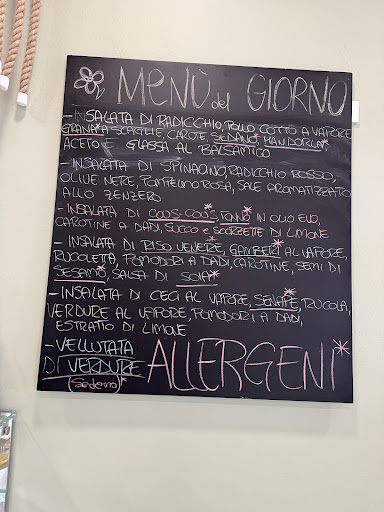 MENÙ del GIORNO
- INSALATA DI RADICCHIO, POLLO COTTO A VAPORE
GRANA* A SCAGLIE, CAROTE, SEDANO*, MANDORLA*
ACETO E GLASSA AL BALSAMICO
- INSALATA DI SPINACINO, RADICCHIO ROSSO,
OLIVE NERE, POMPELMO ROSA, SALE AROMATIZZATO
ALLO ZENZERO
- INSALATA DI COUS-COUS*, TONNO* IN OLIO EVO,
CAROTINE A DADI, SUCCO E SCORZETTE DI LIMONE
- INSALATA DI RISO VENERE, GAMBERI* AL VAPORE,
RUCOLETTA, POMODORI A DADI, CAROTINE, SEMI DI
SESAMO*, SALSA DI SOIA*
- INSALATA DI CECI AL VAPORE, SENAPE*, RUCOLA,
VERDURE AL VAPORE, POMODORI A DADI,
ESTRATTO DI LIMONE
- VELLUTATA
DI VERDURE
(Sedano)*
ALLERGENI*